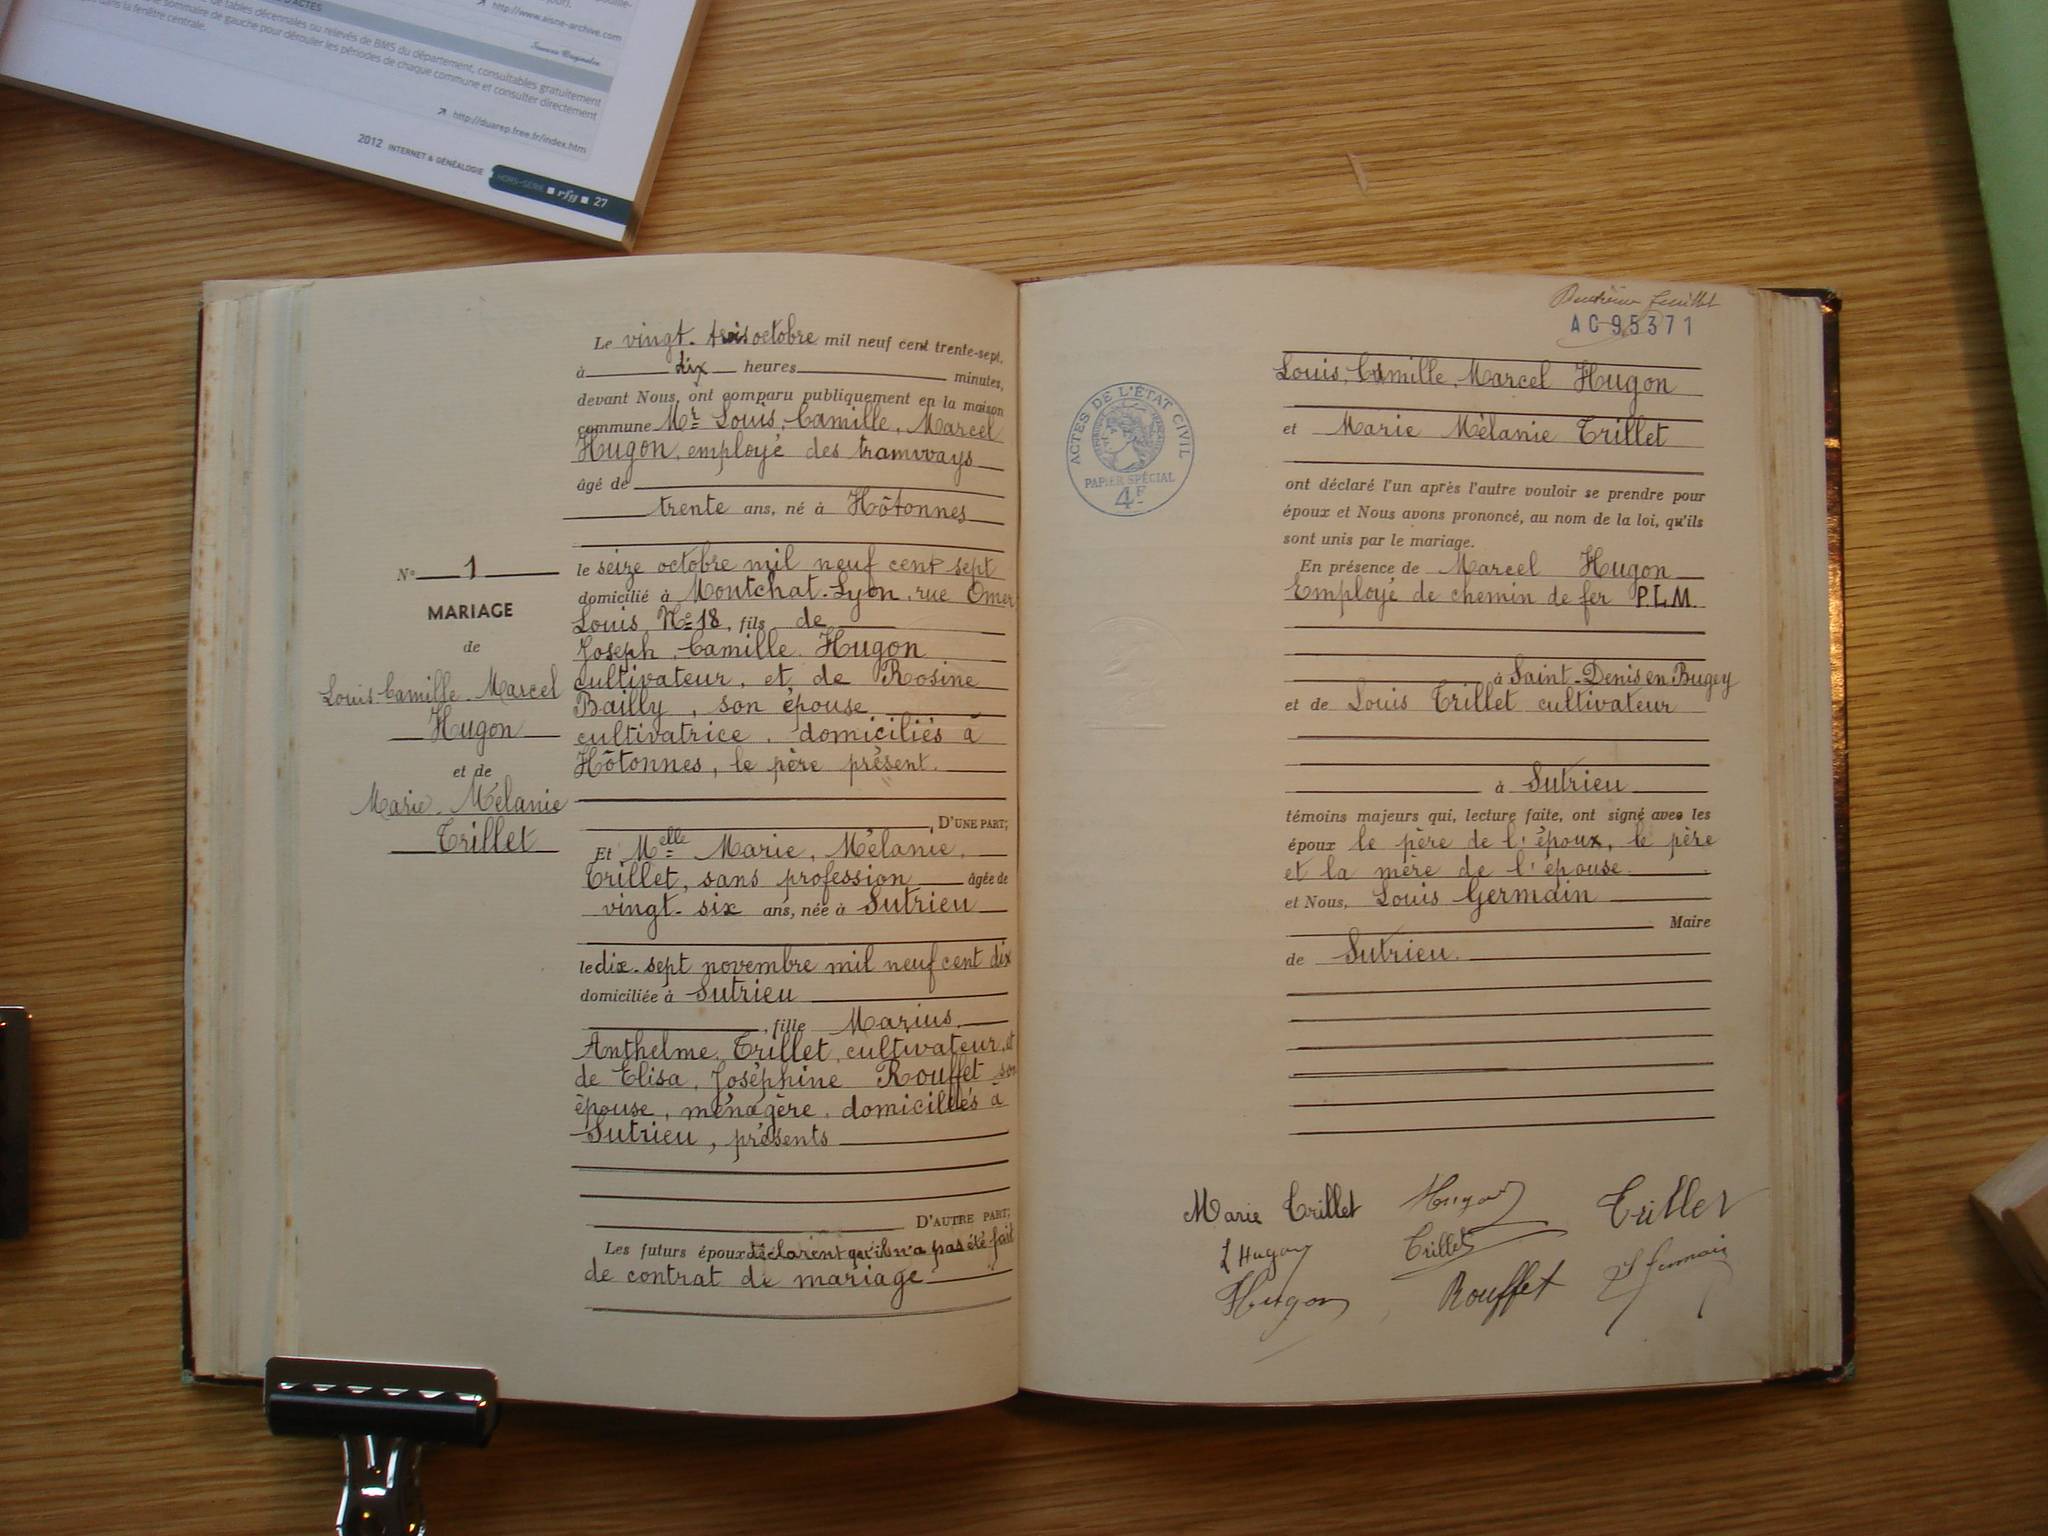 http://www.aisne-archive.com
D'ACTES
de tables décennales ou relevés de BMS du département, consultables gratuitement
sommaire de gauche pour dérouler les périodes de chaque commune et consulter directement
dans la fenêtre centrale.
http://duarep.free.fr/index.htm
2012 INTERNET & GÉNÉALOGIE HORS-SÉRIE rfg 27
Le vingt-trois octobre mil neuf cent trente-sept,
à dix heures minutes,
devant Nous, ont comparu publiquement en la maison
commune Mr Louis, Camille, Marcel
Hugon, employé des tramways
âgé de
trente ans, né à Hôtonnes
le seize octobre mil neuf cent sept
domicilié à Montchat-Lyon, rue Omer
Louis N° 18, fils de
Joseph, Camille, Hugon
cultivateur, et de Rosine
Bailly, son épouse
cultivatrice, domiciliés à
Hôtonnes, le père présent.
D'UNE PART;
N° 1
MARIAGE
de
Louis Camille Marcel
Hugon
et de
Marie Mélanie
Trillet
Et Melle Marie, Mélanie,
Trillet, sans profession âgée de
vingt-six ans, née à Sutrieu
le dix-sept novembre mil neuf cent dix
domiciliée à Sutrieu
, fille Marius,
Anthelme, Trillet, cultivateur, et
de Elisa, Joséphine Rouffet son
épouse, ménagère, domiciliés à
Sutrieu, présents
D'AUTRE PART;
Les futurs époux déclarent qu'il n'a pas été fait
de contrat de mariage
feuillet
AC95371
ACTES DE L'ÉTAT CIVIL
PAPIER SPÉCIAL
4F
Louis, Camille, Marcel Hugon
et Marie Mélanie Trillet
ont déclaré l'un après l'autre vouloir se prendre pour
époux et Nous avons prononcé, au nom de la loi, qu'ils
sont unis par le mariage.
En présence de Marcel Hugon
Employé de chemin de fer P.L.M.
à Saint-Denis en Bugey
et de Louis Trillet cultivateur
à Sutrieu
témoins majeurs qui, lecture faite, ont signé avec les
époux le père de l'époux, le père
et la mère de l'épouse
et Nous, Louis Germain
Maire
de Sutrieu.
Marie Trillet Hugon Trillet
L Hugon Trillet L Germain
Hugon Rouffet